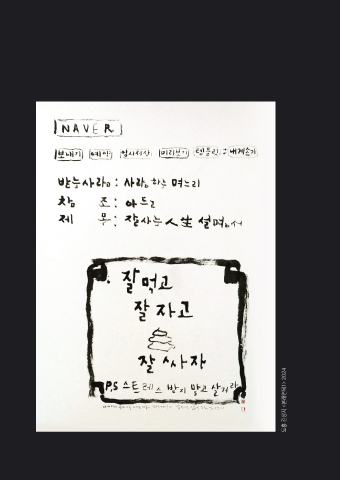 NAVER
보내기 예약 임시저장 미리보기 템플릿 내게쓰기
받는사람 : 사랑하는 며느리
참 조 : 아들
제 목 : 잘사는 人生 설명서
잘 먹고
잘 자고
잘 싸자
PS 스트레스 받지 말고 살거라
2024